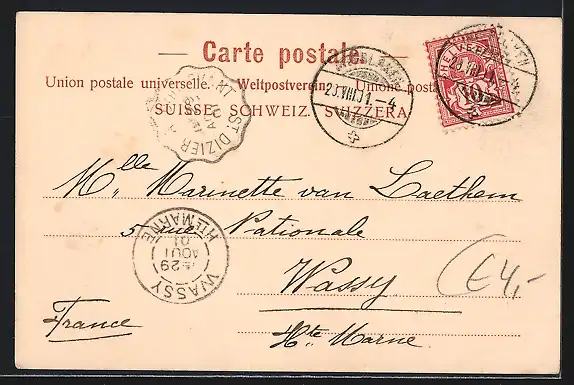 Carte postale.
Union postale universelle. Weltpostverein. Unione posta
SUISSE. SCHWEIZ. SVIZZERA.
ST. DIZIER
23.VIII.01.-4
HELVETIA
10
Mlle Marinette van Laethem
5 rue Nationale
Wassy
Hte Marne
France
WASSY
29
AOUT
01
HTE MARNE
€4,-